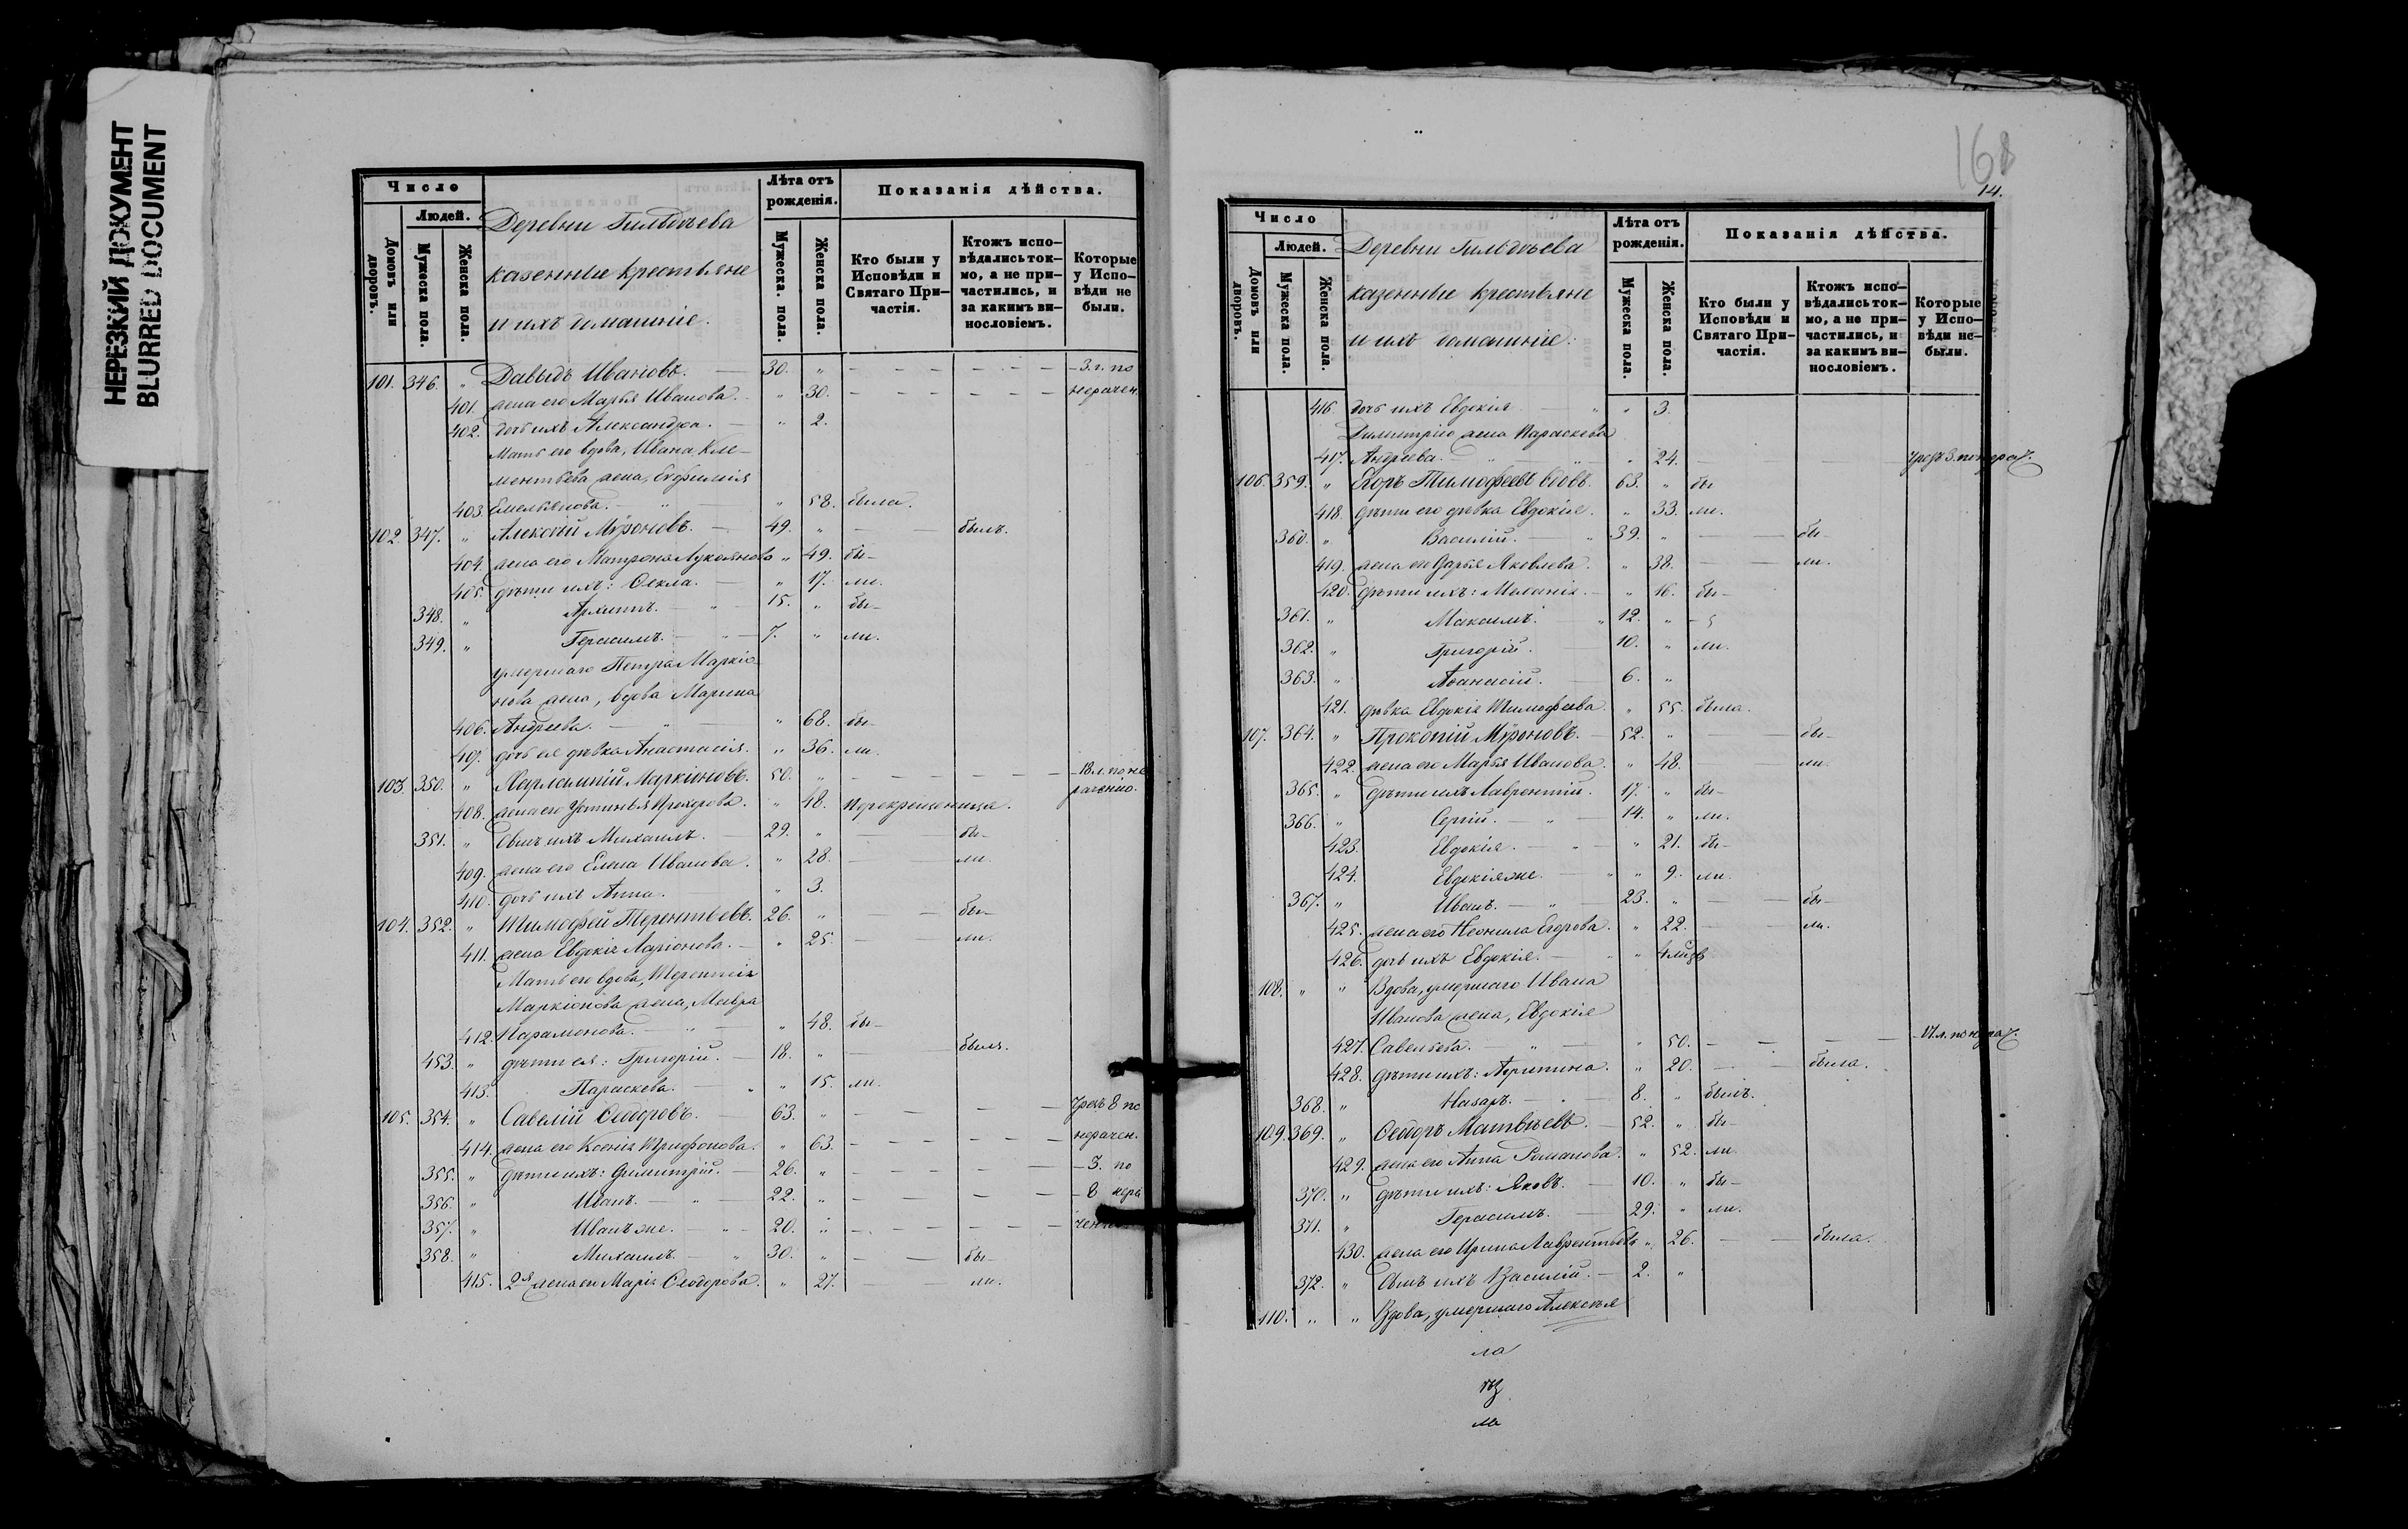 НЕРЕЗКИЙ ДОКУМЕНТ
BLURRED DOCUMENT
Число
Людей.
Домовъ или дворовъ.
Мужеска пола.
Женска пола.
Деревни Гильдѣева
казенные крестьяне
и ихъ домашніе.
Лѣта отъ рожденія.
Мужеска пола.
Женска пола.
Показанія дѣйства.
Кто были у Исповѣди и Святаго Причастія.
Ктожъ исповѣдались токмо, а не причастились, и за какимъ винословіемъ.
Которые у Исповѣди не были.
101. 346. " Давыдъ Ивановъ. 30. " 3. г. по
401. жена его Марья Иванова. " 30. нерачен.
402. дочь ихъ Александра. " 2.
Мать его вдова, Ивана Кле-
ментьева жена, Евфимія
403. Емельянова. " 58. была.
102. 347. " Алексѣй Мѵроновъ. 49. " былъ.
404. жена его Матрона Лукоянова " 49. бы-
405. дѣти ихъ: Ѳекла. " 17. ли.
348. " Архиппъ. 15. " бы-
349. " Герасимъ. 7. " ли.
умершаго Петра Маркіо-
нова жена, вдова Марина
406. Андреева. " 68. бы-
407. дочь ея дѣвка Анастасія. " 36. ли.
103. 350. " Харлампій Маркіоновъ. 50. " 18 л. по не
408. жена его Устинья Прохорова. " 48. Перекрещеница. раченію.
351. " Сынъ ихъ Михаилъ. 29. " бы-
409. жена его Елена Иванова. " 28. ли.
410. дочь ихъ Анна. " 3.
104. 352. " Тимофей Терентьевъ. 26. " бы-
411. жена Евдокія Ларіонова. " 25. ли.
Мать его вдова, Терентія
Маркіонова жена, Мавра
412. Парамонова. " 48. бы-
453. " дѣти ея: Григорій. 18. " былъ.
413. Параскева. " 15. ли.
105. 354. " Савелій Ѳеодоровъ. 63. " чрезъ 8 по
414. жена его Ксенія Трифонова. " 63. нерачен.
355. " дѣти ихъ: Димитрій. 26. " 3. по
356. " Иванъ. 22. " 8 нера
357. " Иванъ же. 20. "
358. " Михаилъ. 30. " бы-
415. 2я жена его Марія Ѳеодорова. " 27. ли.
168
14.
Число
Людей.
Домовъ или дворовъ.
Мужеска пола.
Женска пола.
Деревни Гильдѣева
казенные крестьяне
и ихъ домашніе:
Лѣта отъ рожденія.
Мужеска пола.
Женска пола.
Показанія дѣйства.
Кто были у Исповѣди и Святаго Причастія.
Ктожъ исповѣдались токмо, а не причастились, и за какимъ винословіемъ.
Которые у Исповѣди не были.
416. дочь ихъ Евдокія " 3.
Димитрія жена Параскева
417. Андреева. " 24. чрезъ 3. по нерач.
106. 359. " Егоръ Тимофеевъ вдовъ. 63. " бы
418. дѣти его дѣвка Евдокія. " 33. ли.
360. " Василій. 39. " бы-
419. жена его Дарья Яковлева. " 38. ли.
420. дѣти ихъ: Меланія. " 16. бы-
361. " Максимъ. 12. "
362. " Григорій. 10. " ли.
363. " Аѳанасій. 6. "
421. дѣвка Евдокія Тимофеева. " 55. была.
107. 364. " Прокопій Мѵроновъ. 52. " бы-
422. жена его Марья Иванова. " 48. ли.
365. " дѣти ихъ Лаврентій. 17. " бы-
366. " Сергій. 14. " ли.
423. Евдокія. " 21. бы-
424. Евдокія же. " 9. ли.
367. " Иванъ. 23. " бы-
425. жена его Неонила Егорова. " 22. ли.
426. дочь ихъ Евдокія. "
108. " " Вдова, умершаго Ивана
Иванова жена, Евдокія
427. Савельева. " 50. по нерач.
428. дѣти ихъ: Агрипина. " 20. была.
368. " Назаръ. 8. " былъ.
109. 369. " Ѳеодоръ Матвѣевъ. 52. " бы-
429. жена его Анна Романова. " 52. ли.
370. " дѣти ихъ: Яковъ. 10. " бы-
371. " Герасимъ. 29. " ли.
430. жена его Ирина Лаврентьев " 26. была.
372. " Сынъ ихъ Василій. 2. "
110. " " Вдова, умершаго Алексѣя
ла